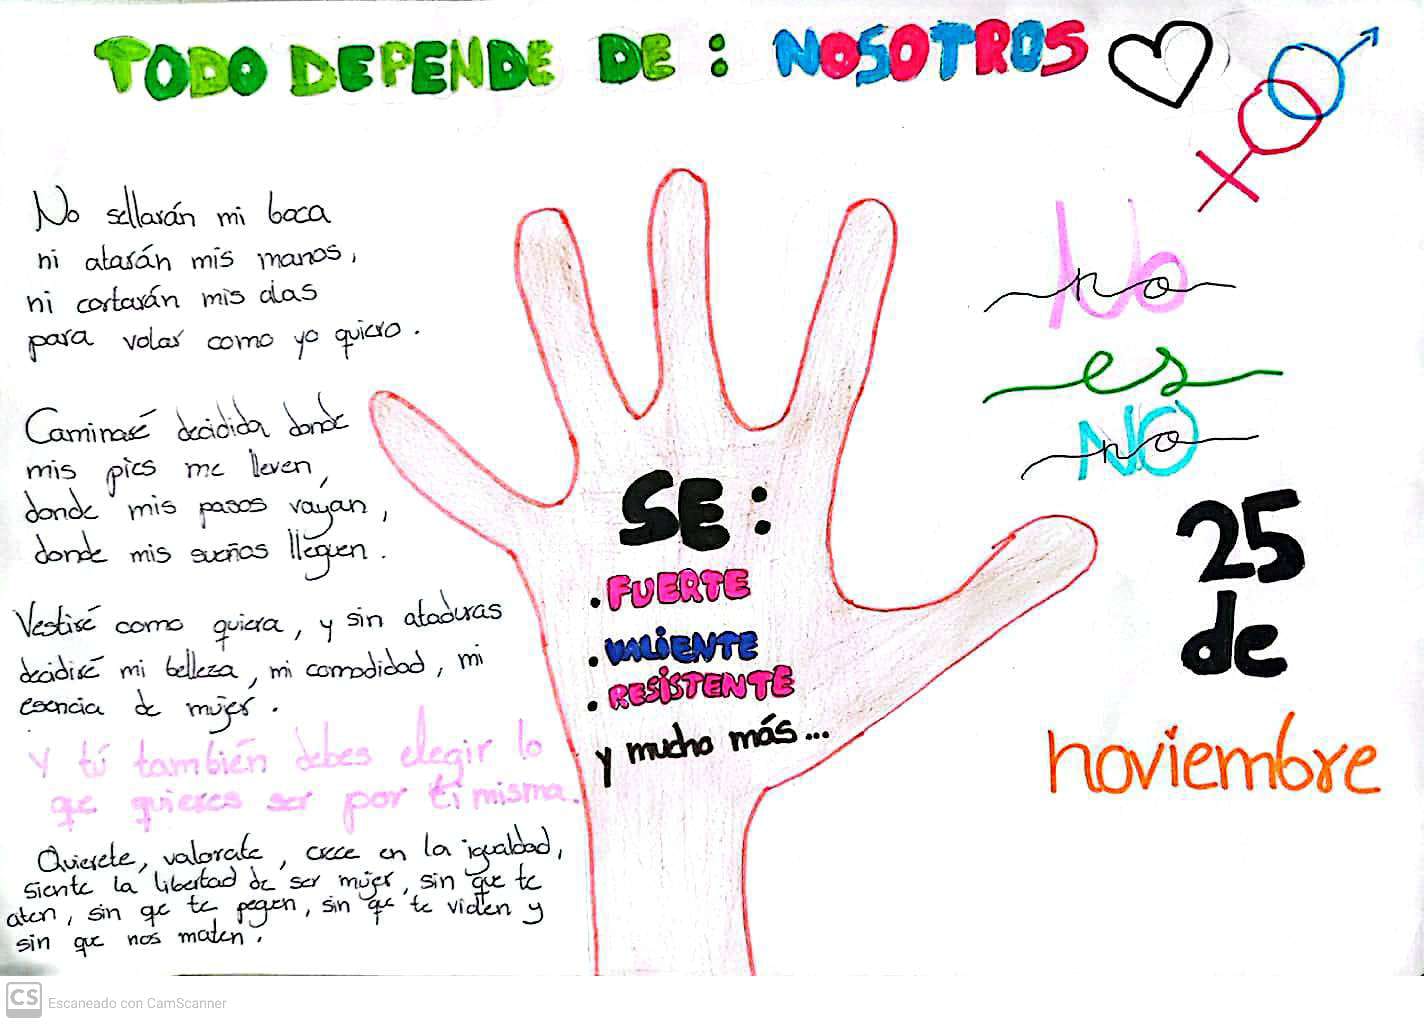 TODO DEPENDE DE : NOSOTROS
No sellarán mi boca
ni atarán mis manos,
ni cortarán mis alas
para volar como yo quiero.
Caminaré decidida donde
mis pies me lleven,
donde mis pasos vayan,
donde mis sueños lleguen.
Vestiré como quiera, y sin ataduras
decidiré mi belleza, mi comodidad, mi
esencia de mujer.
Y tú también debes elegir lo
que quieres ser por ti misma.
Quierete, valorate, cree en la igualdad,
siente la libertad de ser mujer, sin que te
aten, sin qe te peguen, sin qe te violen y
sin que nos maten.
SE:
. FUERTE
. VALIENTE
. RESISTENTE
y mucho más...
No
no
es
NO
no
25
de
noviembre
CS Escaneado con CamScanner